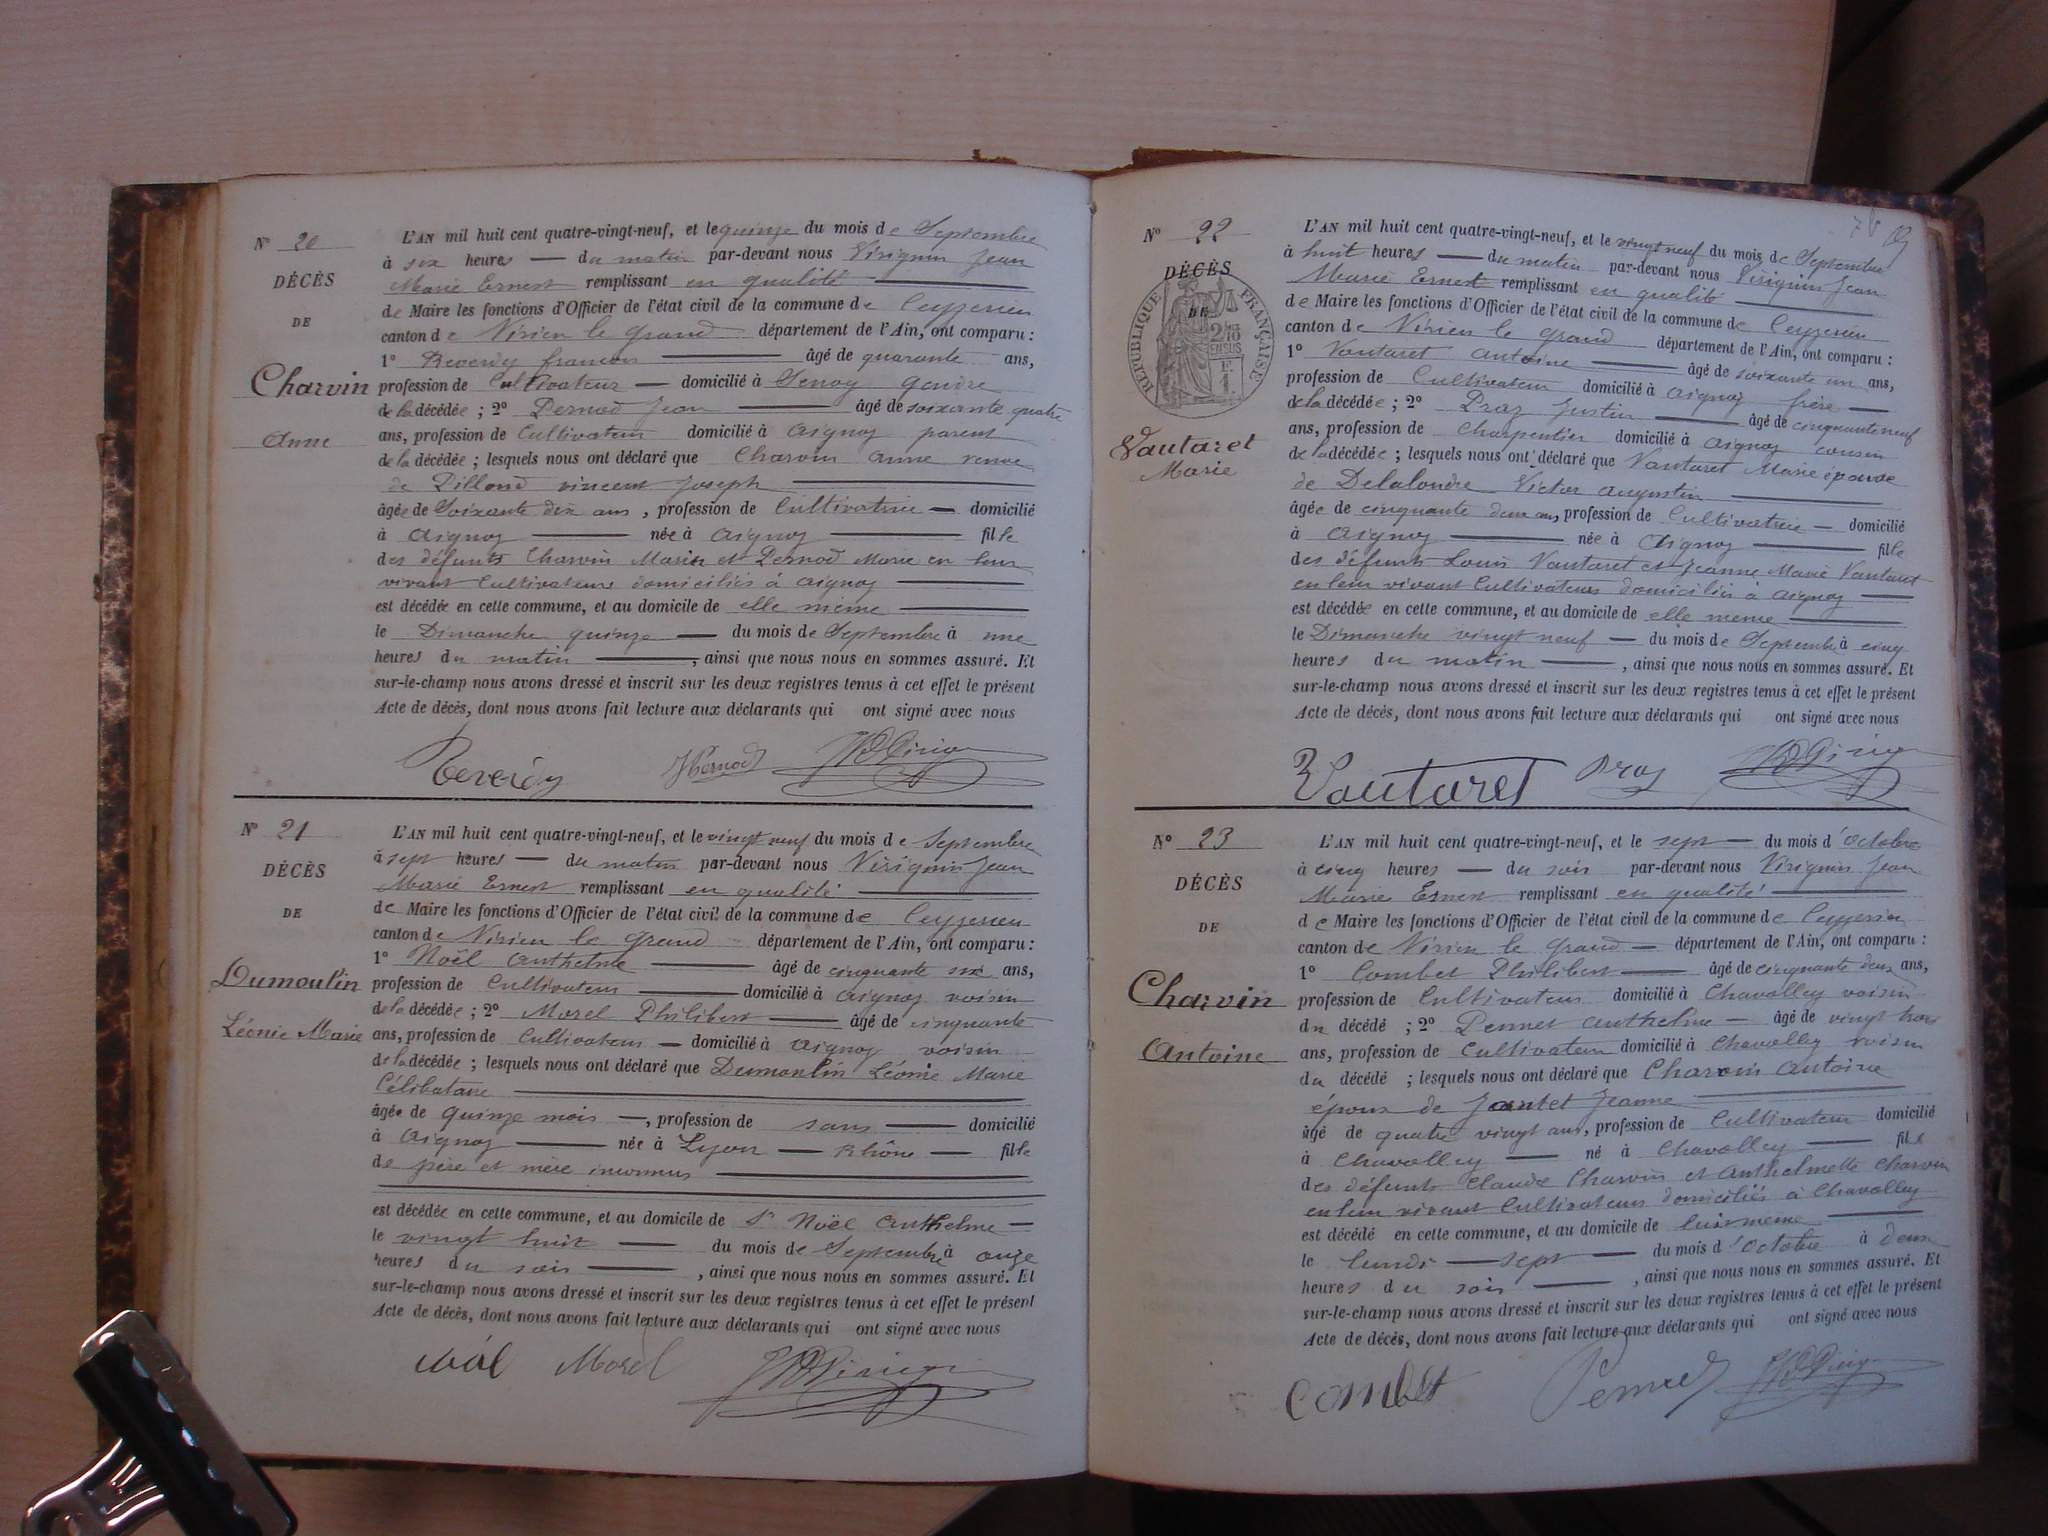 N° 20
DÉCÈS
DE
Charvin
Anne
L'AN mil huit cent quatre-vingt-neuf, et le quinze du mois de Septembre
à six heures — du matin par-devant nous Virignin Jean
Marie Ernest remplissant en qualité
de Maire les fonctions d'Officier de l'état civil de la commune de Ceyzerieu
canton de Virieu le grand département de l'Ain, ont comparu :
1° Reverdy françois âgé de quarante ans,
profession de Cultivateur — domicilié à gendre
de la décédée ; 2° Pernod Jean âgé de soixante quatre
ans, profession de Cultivateur domicilié à Aignoz parent
de la décédée ; lesquels nous ont déclaré que Charvin Anne veuve
de Pillond vincent Joseph
âgée de Soixante dix ans, profession de Cultivatrice — domicilié
à Aignoz née à Aignoz fille
des défunts Charvin Marin et Pernod Marie en leur
vivant Cultivateurs domiciliés à Aignoz
est décédée en cette commune, et au domicile de elle même
le Dimanche quinze — du mois de Septembre à une
heures du matin , ainsi que nous nous en sommes assuré. Et
sur-le-champ nous avons dressé et inscrit sur les deux registres tenus à cet effet le présent
Acte de décès, dont nous avons fait lecture aux déclarants qui ont signé avec nous
Reverdy JPernod
N° 21
DÉCÈS
DE
Dumoulin
Léonie Marie
L'AN mil huit cent quatre-vingt-neuf, et le vingt neuf du mois de Septembre
à sept heures — du matin par-devant nous Virignin Jean
Marie Ernest remplissant en qualité
de Maire les fonctions d'Officier de l'état civil de la commune de Ceyzerieu
canton de Virieu le grand département de l'Ain, ont comparu :
1° Noël Anthelme âgé de cinquante six ans,
profession de Cultivateur domicilié à Aignoz voisin
de la décédée ; 2° Morel Philibert âgé de cinquante
ans, profession de Cultivateur — domicilié à Aignoz voisin
de la décédée ; lesquels nous ont déclaré que Dumoulin Léonie Marie
Célibataire
âgée de quinze mois —, profession de sans — domicilié
à Aignoz née à Lyon — Rhône — fille
de père et mère inconnus
est décédée en cette commune, et au domicile de Sr Noël Anthelme —
le vingt huit — du mois de Septembre à onze
heures du soir , ainsi que nous nous en sommes assuré. Et
sur-le-champ nous avons dressé et inscrit sur les deux registres tenus à cet effet le présent
Acte de décès, dont nous avons fait lecture aux déclarants qui ont signé avec nous
Noël Morel
N° 22
DÉCÈS
DE
RÉPUBLIQUE FRANÇAISE
Vautaret
Marie
L'AN mil huit cent quatre-vingt-neuf, et le vingt neuf du mois de Septembre
à huit heures — du matin par-devant nous Virignin Jean
Marie Ernest remplissant en qualité
de Maire les fonctions d'Officier de l'état civil de la commune de Ceyzerieu
canton de Virieu le grand département de l'Ain, ont comparu :
1° Vautaret Antoine âgé de soixante un ans,
profession de Cultivateur domicilié à Aignoz frère —
de la décédée ; 2° Praz Justin âgé de cinquante neuf
ans, profession de Charpentier domicilié à Aignoz cousin
de la décédée ; lesquels nous ont déclaré que Vautaret Marie épouse
de Delalondre Victor Augustin
âgée de cinquante deux ans, profession de Cultivatrice — domicilié
à Aignoz née à Aignoz fille
des défunts Louis Vautaret et Jeanne Marie Vautaret
en leur vivant Cultivateurs domiciliés à Aignoz
est décédée en cette commune, et au domicile de elle même
le Dimanche vingt neuf — du mois de Septembre à cinq
heures du matin , ainsi que nous nous en sommes assuré. Et
sur-le-champ nous avons dressé et inscrit sur les deux registres tenus à cet effet le présent
Acte de décès, dont nous avons fait lecture aux déclarants qui ont signé avec nous
Vautaret Praz
N° 23
DÉCÈS
DE
Charvin
Antoine
L'AN mil huit cent quatre-vingt-neuf, et le sept — du mois d'Octobre
à cinq heures — du soir par-devant nous Virignin Jean
Marie Ernest remplissant en qualité
de Maire les fonctions d'Officier de l'état civil de la commune de Ceyzerieu
canton de Virieu le grand — département de l'Ain, ont comparu :
1° Combet Philibert âgé de cinquante deux ans,
profession de Cultivateur domicilié à Chavolley voisin
du décédé ; 2° Pernet Anthelme — âgé de vingt trois
ans, profession de Cultivateur domicilié à Chavolley voisin
du décédé ; lesquels nous ont déclaré que Charvin Antoine
époux de Jantet Jeanne
âgé de quatre vingt ans, profession de Cultivateur domicilié
à Chavolley né à Chavolley fils
des défunts Claude Charvin et Anthelmette Charvin
en leur vivant Cultivateurs domiciliés à Chavolley
est décédé en cette commune, et au domicile de lui même
le lundi — sept — du mois d'Octobre à deux
heures du soir , ainsi que nous nous en sommes assuré. Et
sur-le-champ nous avons dressé et inscrit sur les deux registres tenus à cet effet le présent
Acte de décès, dont nous avons fait lecture aux déclarants qui ont signé avec nous
Combet